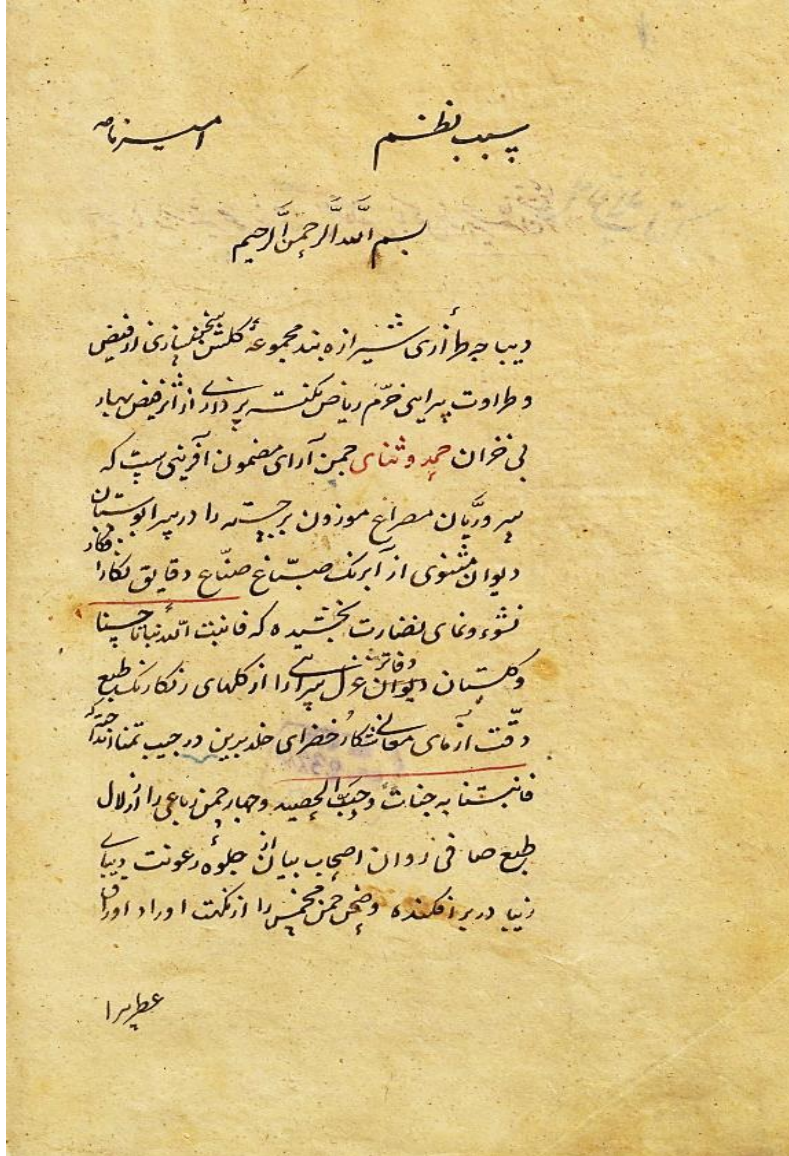 سبب نظم امیرنامه
بسم اللّه الرحمن الرحیم
دیباجه طرازی شیرازه بند مجموعهٔ کلشن سخن سازی از فیض
و طراوت پیرایی خرّم ریاض نکته پردازی از اثر فیض بهار
بی خزان حمد و ثنای جمن آرای مضمون آفرینی ست که
سرو ریّان مصراع موزون برجسته را در سرابوستان
دیوان مثنوی از آبرنک صبّاغ صنّاع دقایق نکار افکار
نشوء و نمای نضارت بخشیده که فانبت اللّه نباتا حسنا
و کلستان دیوان دفاتر غزل سرایی را از کلهای رنکارنک طبع
دقّت آزمای معانی شکار خضرای خلد برین در جیب تمنا انداخته که
فانبتنا به جنات و حبّ الحصید و جهار جمن رباعی را از زلال
طبع صافی روان اصحاب بیان از جلوهٔ رعونت دیبای
زیبا در بر افکنده و صحن جمن مخمس را از نکهت اوراد اوراق
عطر سرا